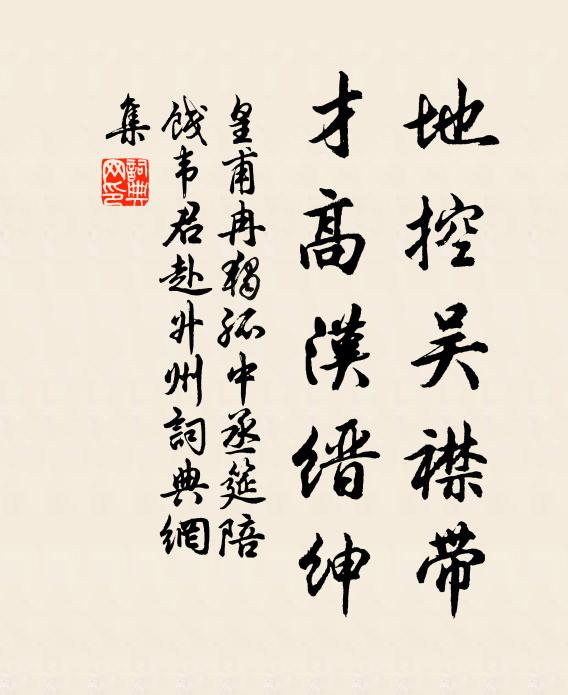 地控吴襟带
才高漢缙绅
皇甫冉獨孤中丞筵陪
餞韦君赴升州詞典網
集
詞典網印